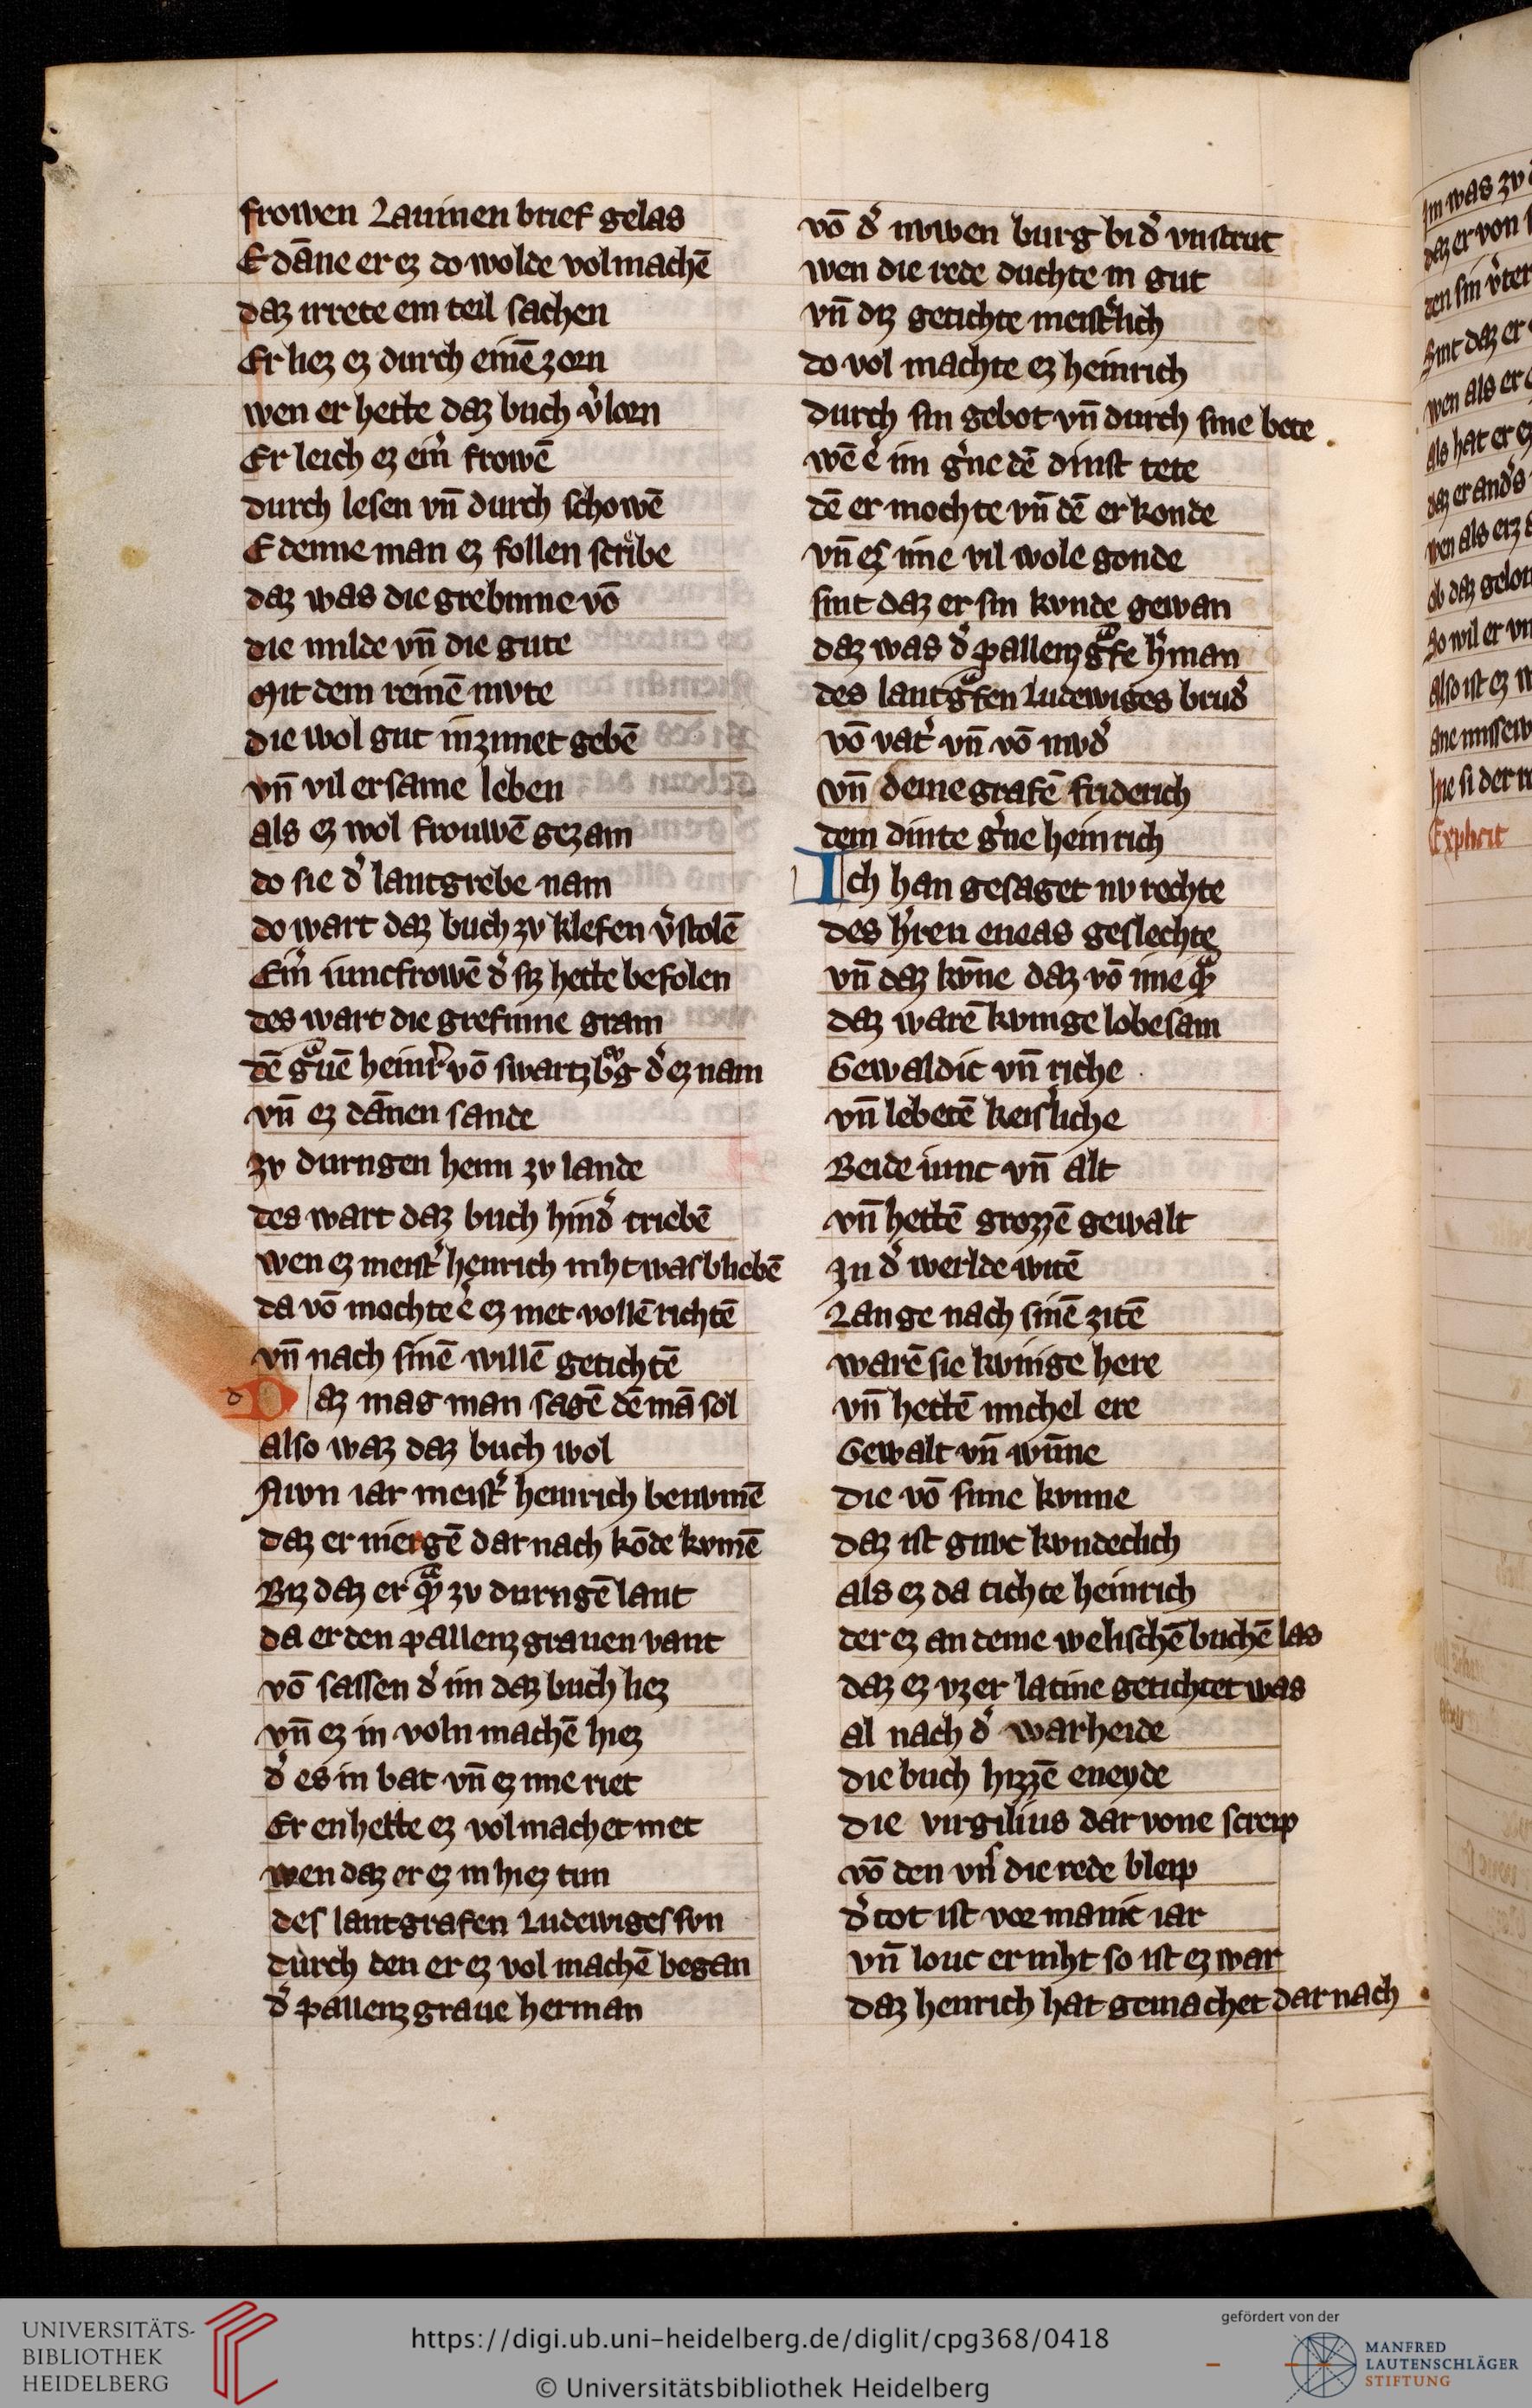 frowen Lauinen brief gelas
E dāne er ez do wolde volmachē
daz irrete ein teil sachen
Er liez ez durch einē zorn
wen er hette daz buch v̾lorn
Er leich ez ein̾ frowē
durch lesen vn̄ durch schowē
E denne man ez follen scribe
daz was die grebinne vō
die milde vn̄ die gute
Mit dem reinē mvte
die wol gut inzinnet gebē
vn̄ vil ersame leben
als ez wol frouwē gezam
do sie d̾ lantgrebe nam
do wart daz buch zv klefen v̾stolē
Ein̾ iuncfrowē d̾ siz hette befolen
des wart die grefinne gram
dē gͣuē heinr̾ vō swartzbͮg d̾ ez nam
vn̄ ez dānen sande
zv durngen heim zv lande
des wart daz buch hind̾ triebē
wen ez meist̾ henrich niht was bliebē
da vō mochte e̾ ez niet vollē richtē
vn̄ nach sinē willē getichtē
Daz mag man sagē dē mā sol
also waz daz buch wol
Nivn iar meist̾ heinrich benvmē
daz er niergē dar nach kōde kvmē
Biz daz er qͣm zv durngē lant
da er den pallenzgrauen vant
vō sassen d̾ im daz buch liez
vn̄ ez in voln machē hiez
d̾ es in bat vn̄ ez ime riet
Er enhette ez volmachet niet
wen daz er ez in hiez tun
des lantgrafen Ludewiges svn
durch den er ez vol machē began
d̾ pallenzgraue herman
vō d̾ nvwen burg bi d̾ vnstrut
wen die rede duchte in gut
vn̄ diz getichte meist̾lich
do vol machte ez heinrich
durch sin gebot vn̄ durch sine bete
wē e̾ im g̾ne dē dinst tete
dē er mochte vn̄ dē er konde
vn̄ es ime vil wole gonde
sint daz er sin kvnde gewan
daz was d̾ pallenzgͣfe h̾man
des lantgͣfen Ludewiges brud̾
vō vat̾ vn̄ vō mvd̾
vn̄ deme grafē friderich
dem dinte g̾ne heinrich
Ich han gesaget nv rechte
des h̾ren eneas geslechte
vn̄ daz kvn̄e daz vō ime qͣm
daz warē kvnige lobesam
Gewaldic vn̄ riche
vn̄ lebetē keis̾liche
Beide iunc vn̄ alt
vn̄ hettē grozzē gewalt
In d̾ werlde witē
Lange nach sinē zitē
warē sie kvnige here
vn̄ hettē michel ere
Gewalt vn̄ wn̄ne
die vō sime kvnne
daz ist gnvc kvndeclich
als ez da tichte heinrich
der ez an deme welischē buchē las
daz ez vzer latine getichtet was
al nach d̾ warheide
die buch hizzē eneyde
die virgilius dar vone screip
vō den vns̾ die rede bleip
d̾ tot ist vor manic iar
vn̄ louc er niht so ist ez war
daz henrich hat gemachet dar nach
daz er von
wen als er
als hat er ez
daz er and̾s
So wil er vn
also ist ez
Explicit
UNIVERSITÄTS-
BIBLIOTHEK
HEIDELBERG
https://digi.ub.uni-heidelberg.de/diglit/cpg368/0418
© Universitätsbibliothek Heidelberg
gefördert von der
MANFRED
LAUTENSCHLÄGER
STIFTUNG